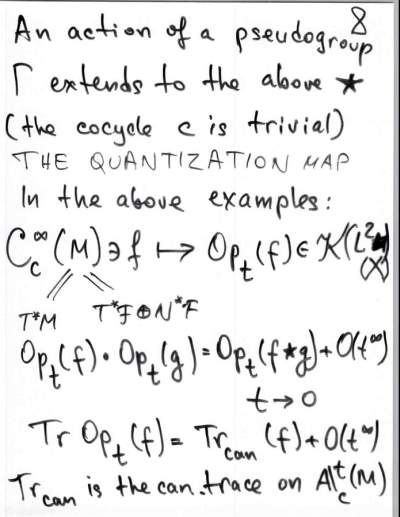 8
An action of a pseudogroup
Γ extends to the above ★
(the cocycle c is trivial)
THE QUANTIZATION MAP
In the above examples:
C_c^∞(M) ∋ f ↦ Op_t(f) ∈ K(L²(X))
T*M T*F⊕N*F
Op_t(f)·Op_t(g)=Op_t(f★g)+O(t^∞)
t→0
Tr Op_t(f)= Tr_can (f)+O(t^∞)
Tr_can is the can. trace on A_c^t(M)